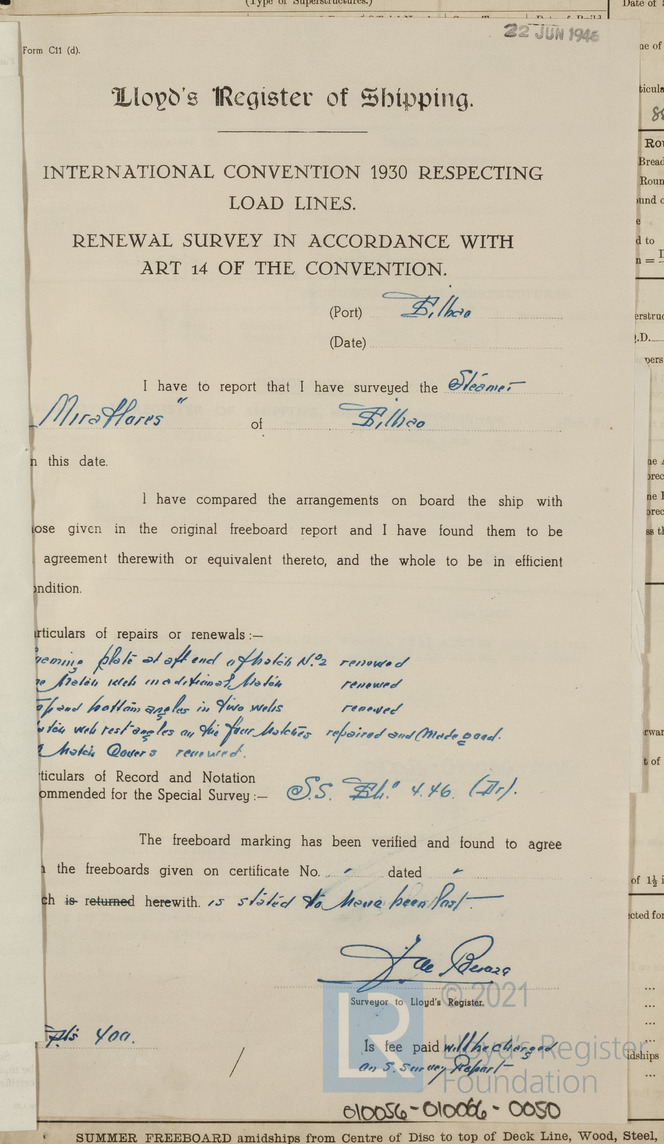 (Type of Superstructures.)
Date of
22 JUN 1946
Form C11 (d).
Lloyd's Register of Shipping.
INTERNATIONAL CONVENTION 1930 RESPECTING
LOAD LINES.
RENEWAL SURVEY IN ACCORDANCE WITH
ART 14 OF THE CONVENTION.
(Port) Bilbao
(Date)
I have to report that I have surveyed the Steamer
Miraflores" of Bilbao
n this date.
I have compared the arrangements on board the ship with
ose given in the original freeboard report and I have found them to be
agreement therewith or equivalent thereto, and the whole to be in efficient
ondition.
rticulars of repairs or renewals :—
plate at aft end of hatch No. 2 renewed
Hatch web in additional hatch renewed
p and bottom angles in two webs renewed
web rest angles on the four hatches repaired and made good.
Hatch Covers renewed.
ticulars of Record and Notation
ommended for the Special Survey :— S.S. Blb. 4.46. (Dr).
The freeboard marking has been verified and found to agree
the freeboards given on certificate No. " dated "
ch is returned herewith. is stated to have been lost.
J. de Beraza
Surveyor to Lloyd's Register.
400.
Is fee paid will be charged
on S. Survey Report
© 2021
LR
Lloyd's Register
Foundation
010056-010066-0050
SUMMER FREEBOARD amidships from Centre of Disc to top of Deck Line, Wood, Steel,